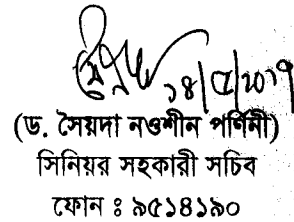 ১৪/৫/২০১৭
(ড. সৈয়দা নওশীন পর্ণিনী)
সিনিয়র সহকারী সচিব
ফোন ঃ ৯৫১৪১৯০